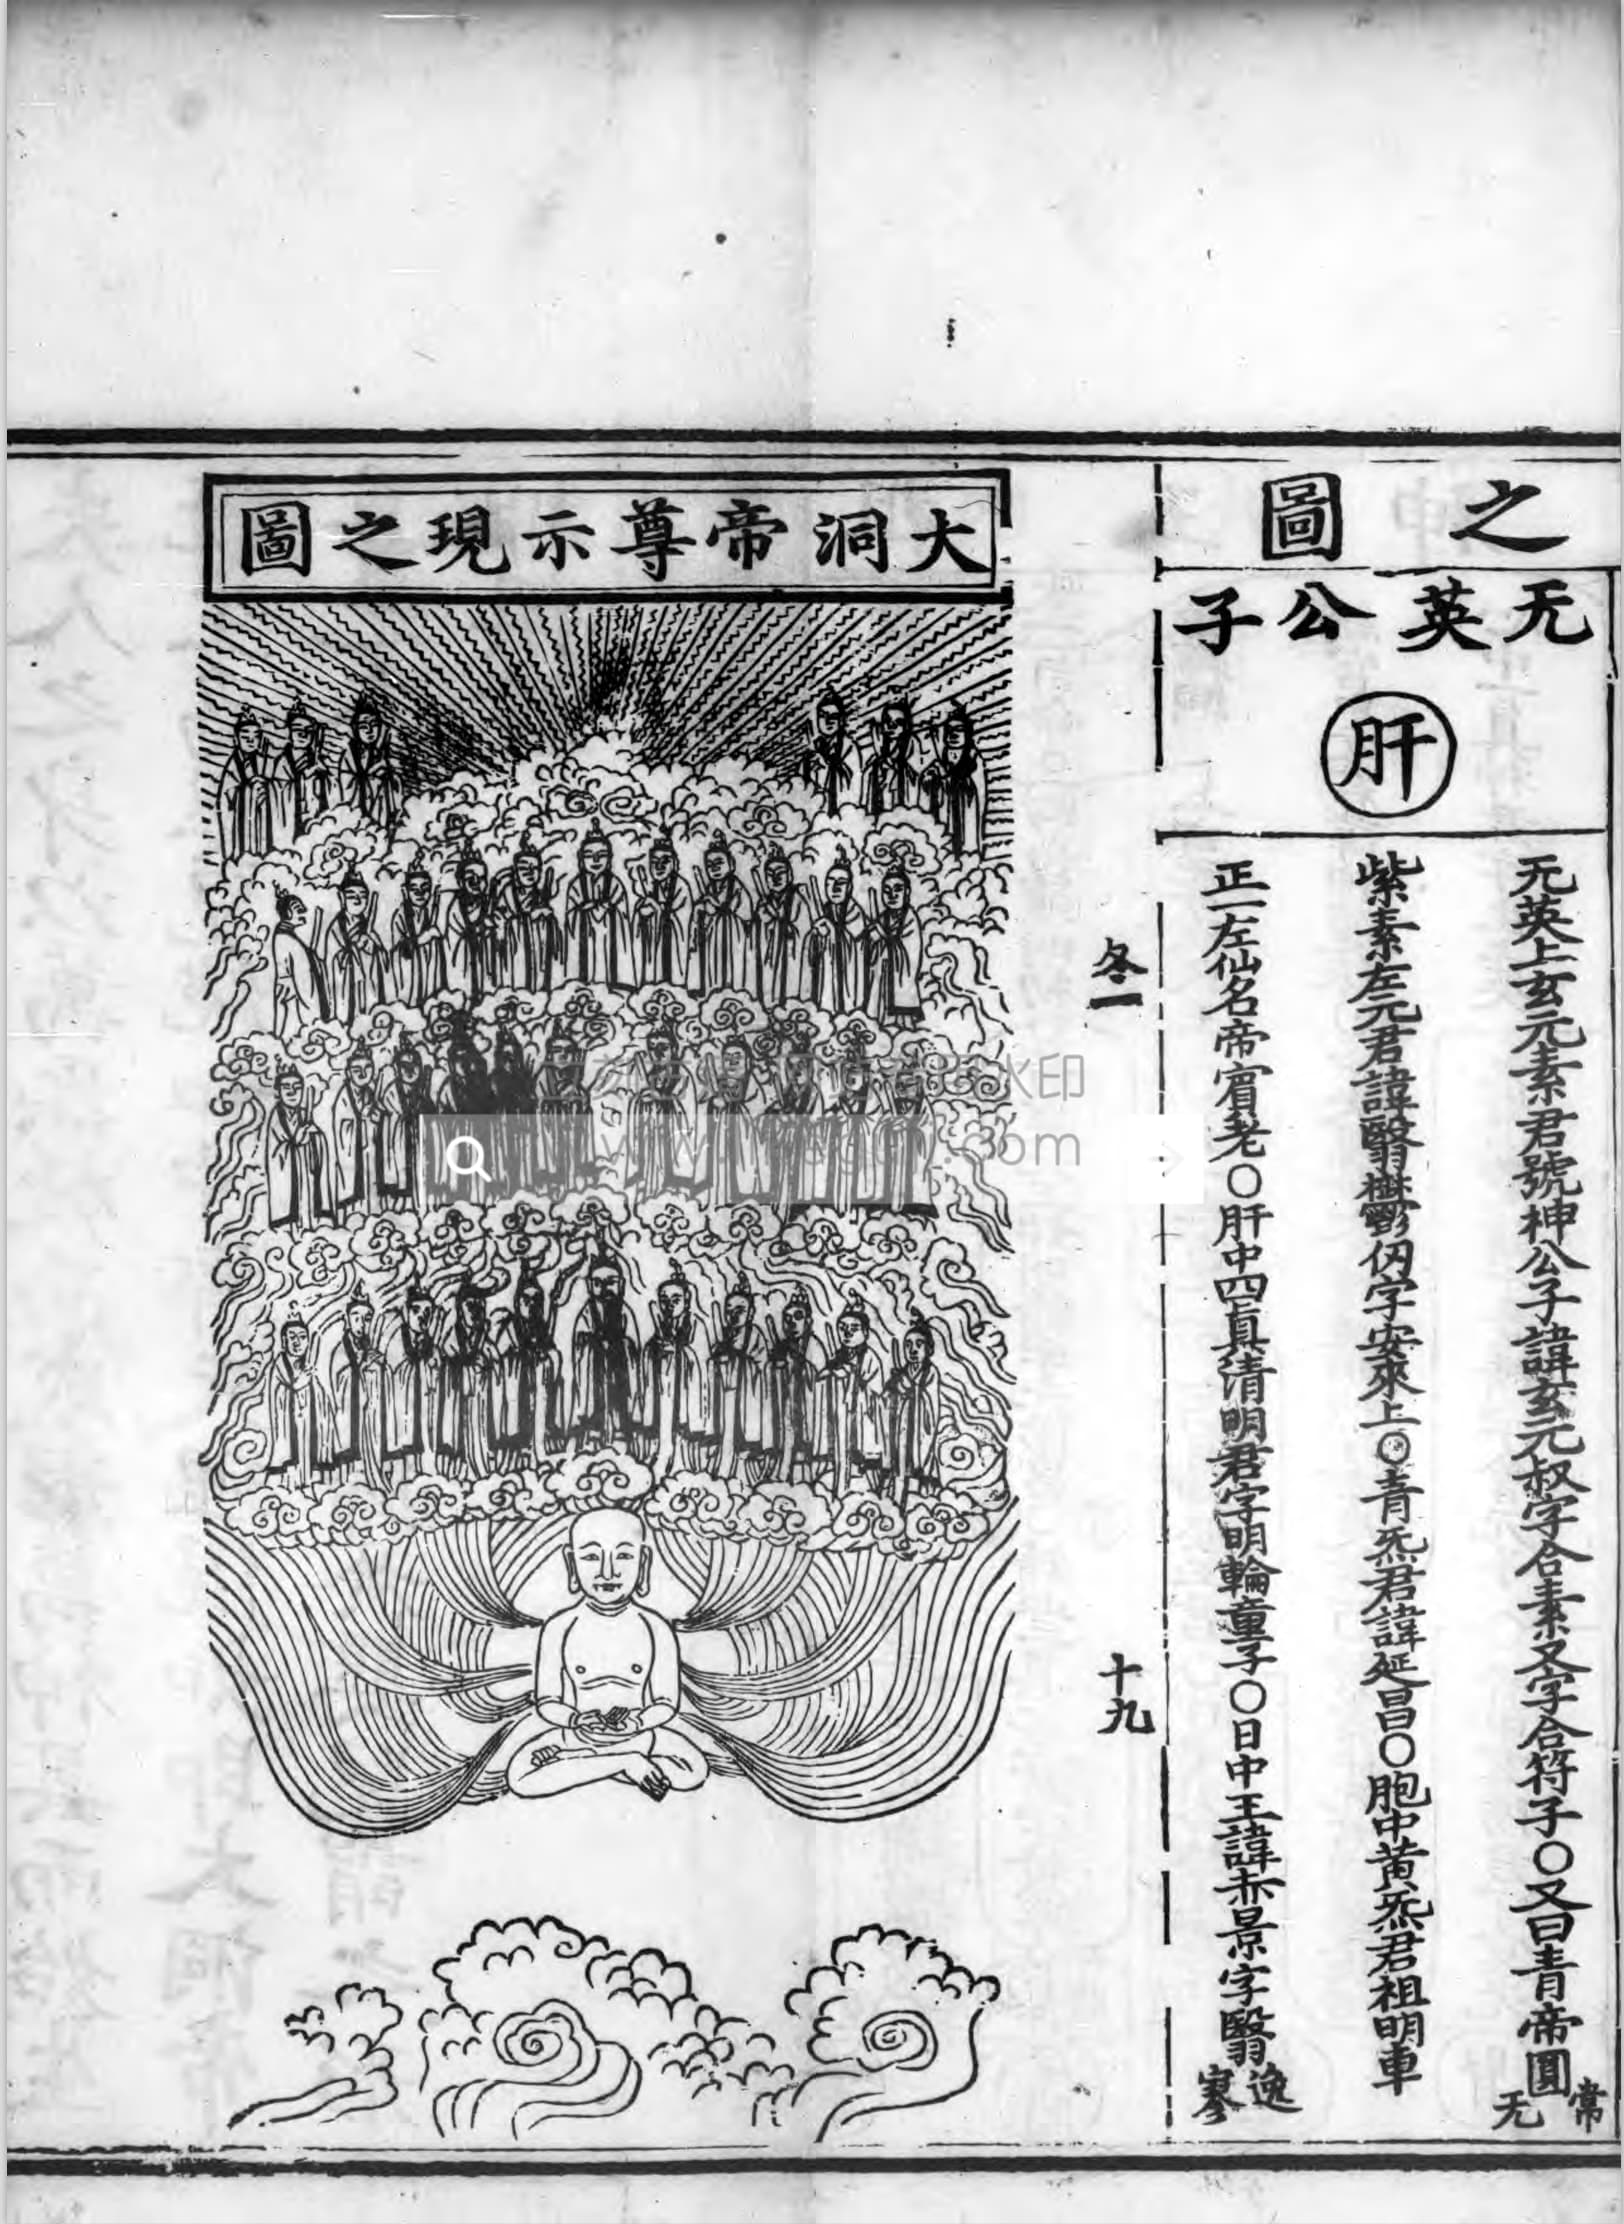 之圖
无英公子
肝
无英上玄元素君號神公子諱玄元叔字合素又字合符子〇又曰青帝圓常无
紫素左元君諱翳欝伆字安來上〇青炁君諱延昌〇胞中黃炁君祖明車
正一左仙名帝賔老〇肝中四真清明君字明輪童子〇日中王諱赤景字翳逸寥
冬一
十九
大洞帝尊示現之圖
水印